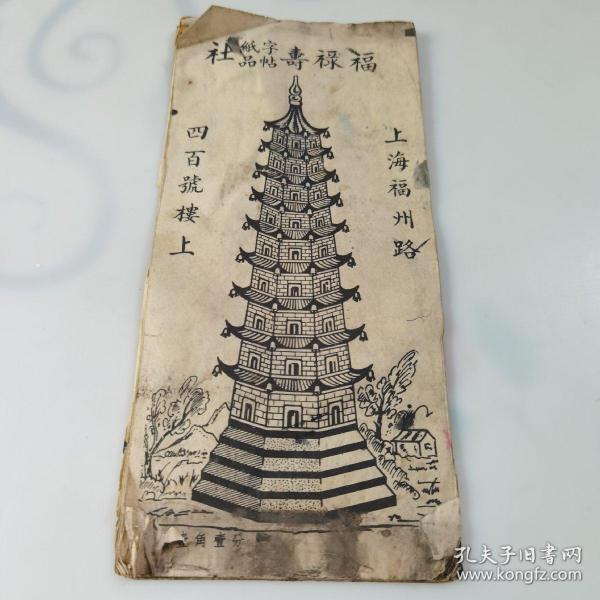 福祿壽字帖紙品社
上海福州路
四百號樓上
角壹分
孔夫子旧书网
www.kongfz.com